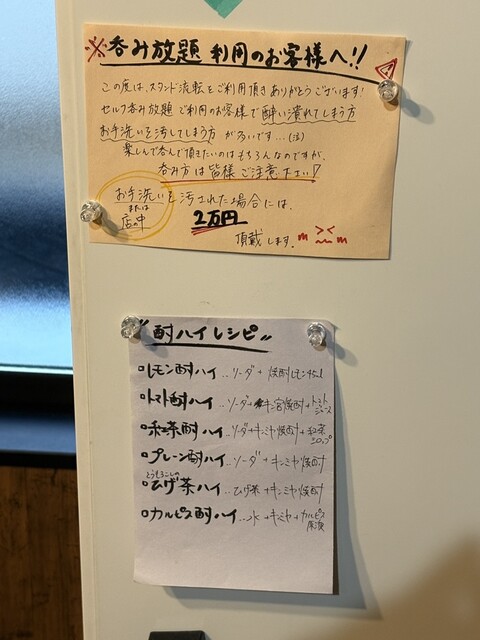 ※呑み放題 利用のお客様へ!!
この度は、スタンド流転をご利用頂きありがとうございます!
セルフ呑み放題ご利用のお客様で酔い潰れてしまう方
お手洗いを汚してしまう方 が多いです…(泣)
楽しんで呑んで頂きたいのはもちろんなのですが、
呑み方は皆様ご注意下さい!?
お手洗いを汚された場合には、
または
店の中
2万円
頂戴します。m ><  m
"酎ハイレシピ"
レモン酎ハイ…ソーダ+焼酎レモン
トマト酎ハイ…ソーダ+キンミヤ焼酎+トマトジュース
和茶酎ハイ…ソーダ+キンミヤ焼酎+和茶シロップ
プレーン酎ハイ…ソーダ+キンミヤ焼酎
とうもろこしの
ひげ茶ハイ…ひげ茶+キンミヤ焼酎
カルピス酎ハイ…水+キンミヤ+カルピス原液